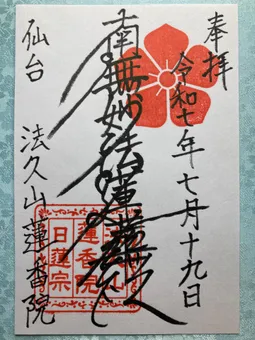 奉拝
令和七年七月十九日
南無妙法蓮華経
仙台 法久山蓮香院
蓮香院
日蓮宗